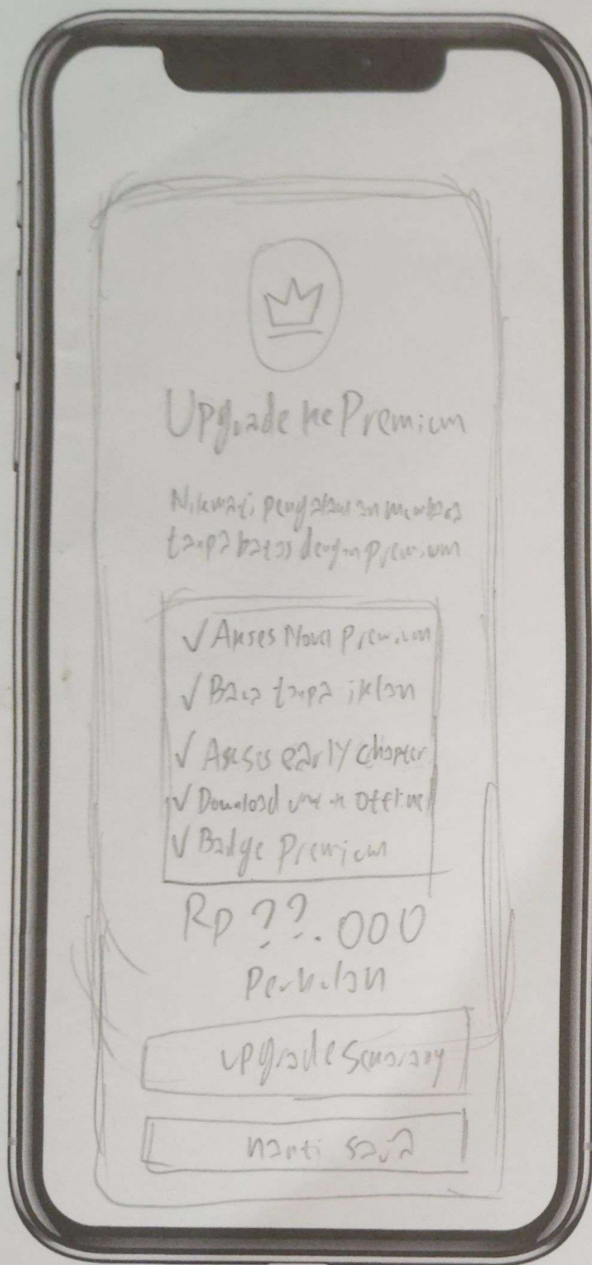 Upgrade ke Premium
Nikmati pengalaman membaca
tanpa batas dengan premium
√ Akses Novel Premium
√ Baca tanpa iklan
√ Akses early chapter
√ Download untuk offline
√ Badge Premium
Rp ??.000
Perbulan
Upgrade Sekarang
nanti saja